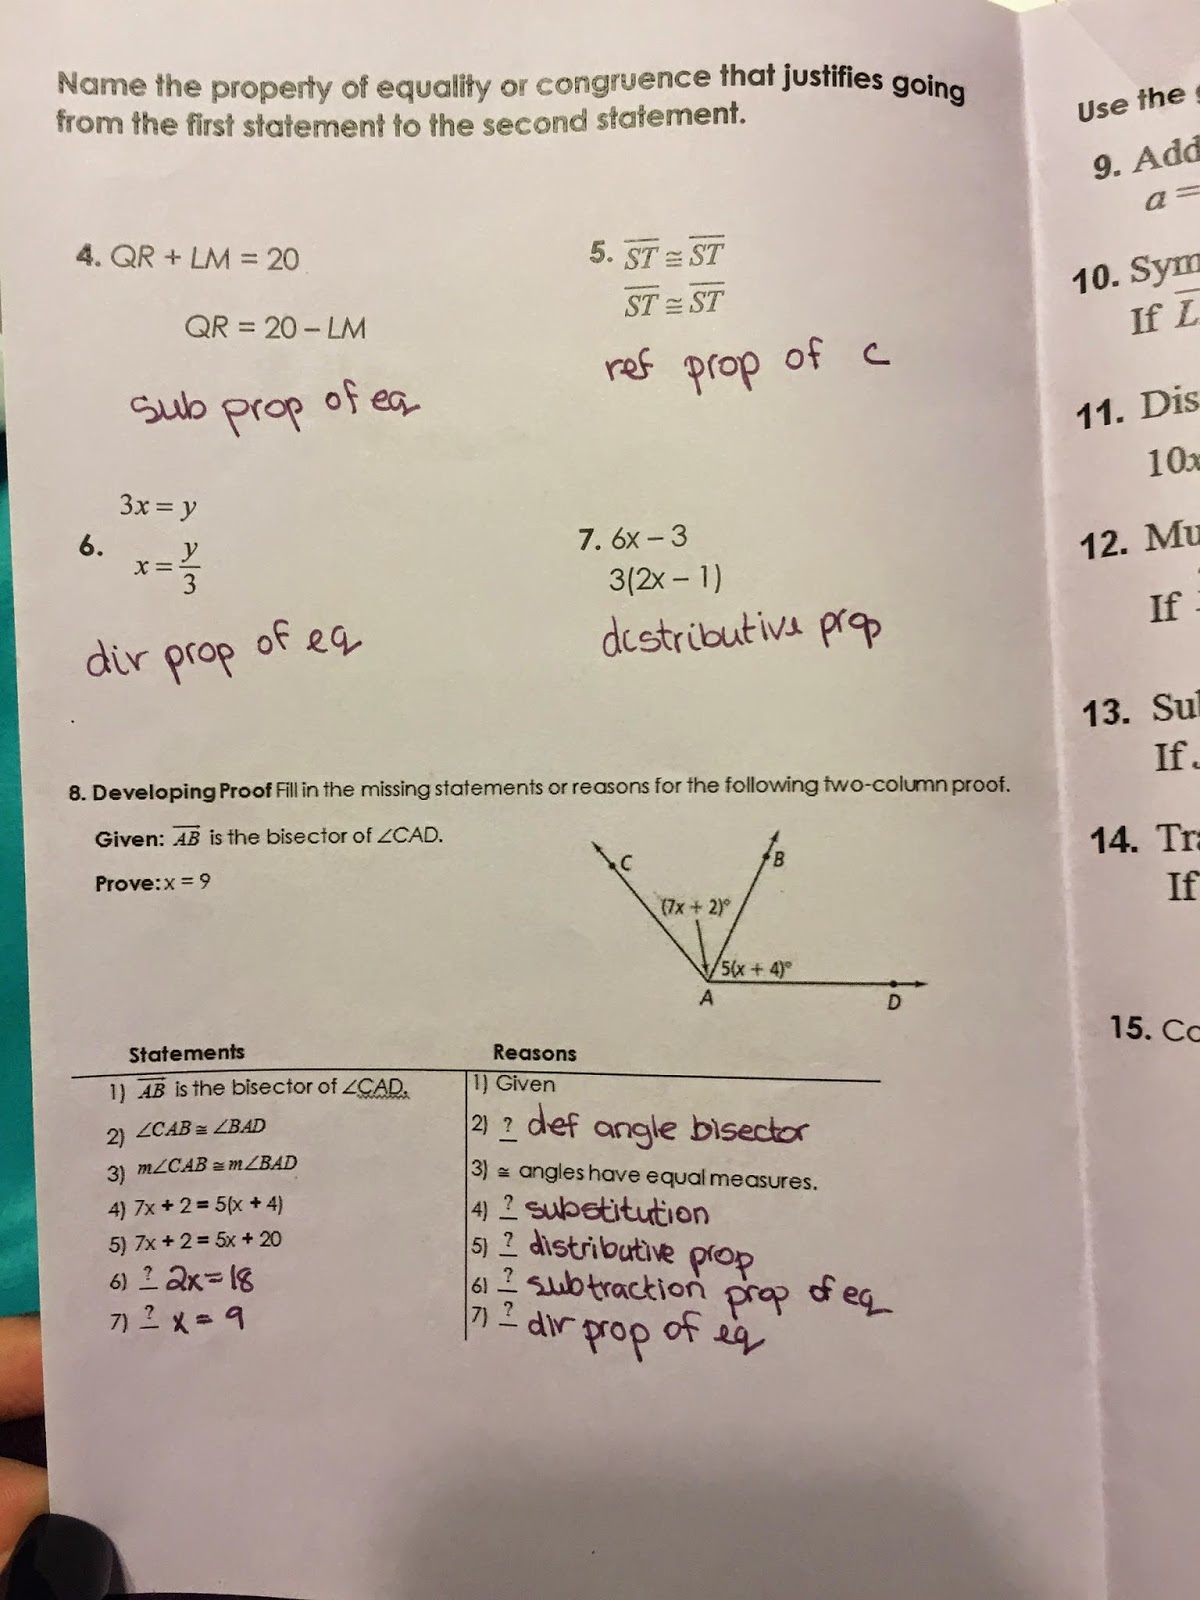 Name the property of equality or congruence that justifies going
from the first statement to the second statement.
4. QR + LM = 20
QR = 20 – LM
sub prop of eq
5. ST ≅ ST
ST ≅ ST
ref prop of c
6.
3x = y
x = y/3
dir prop of eq
7. 6x – 3
3(2x – 1)
distributive prop
8. Developing Proof Fill in the missing statements or reasons for the following two-column proof.
Given: AB is the bisector of ∠CAD.
Prove: x = 9
C
B
(7x + 2)°
5(x + 4)°
A
D
Statements
Reasons
1) AB is the bisector of ∠CAD.
1) Given
2) ∠CAB ≅ ∠BAD
2) ? def angle bisector
3) m∠CAB ≅ m∠BAD
3) ≅ angles have equal measures.
4) 7x + 2 = 5(x + 4)
4) ? substitution
5) 7x + 2 = 5x + 20
5) ? distributive prop
6) ? 2x = 18
6) ? subtraction prop of eq
7) ? x = 9
7) ? dir prop of eq
Use the
9. Add
a =
10. Sym
If L
11. Dis
10x
12. Mu
If
13. Su
If
14. Tra
If
15. Co